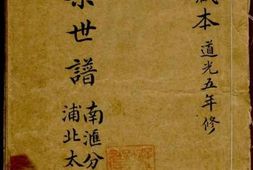 藏本 道光五年修
世譜
南滙分
浦北太